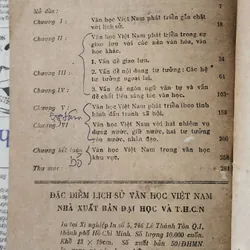 Mở đầu:
Chương I : Văn học Việt Nam phát triển gắn chặt với lịch sử.
Chương II : Văn học Việt Nam phát triển trong sự giao lưu với các nền văn hóa, văn học khác. 34
1. Vấn đề giao lưu.
Chương III : 2. Vấn đề nội dung tư tưởng: Các hệ tư tưởng ngoại lai.
Chương IV : 3. Vấn đề ngôn ngữ văn tự và vấn đề chất liệu sáng tác văn học.
Chương V : Văn học Việt Nam phát triển theo tình hình đấu tranh xã hội.
Chương VI : Văn học Việt Nam với hai nhiệm vụ dựng nước, giữ nước, hai tư tưởng yêu nước, nhân đạo.
Chương kết luận : Văn học Việt Nam trong văn học khu vực.
ĐẶC ĐIỂM LỊCH SỬ VĂN HỌC VIỆT NAM
NHÀ XUẤT BẢN ĐẠI HỌC VÀ T.H.C.N
In tại Xí nghiệp In số 5, 266 Lê Thánh Tôn Q.1,
thành phố Hồ Chí Minh. Số lượng 10.000 cuốn.
Khổ 13 × 19cm. Số xuất bản 50/ĐHMN.